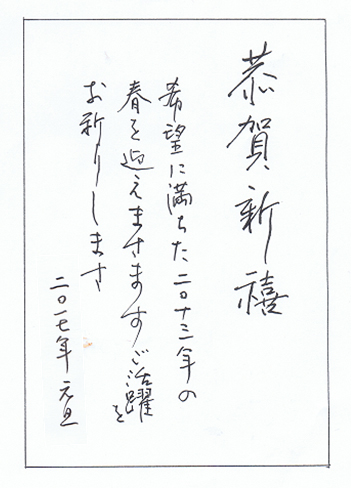 恭賀新禧
希望に満ちた二〇十三年の
春を迎えますますご活躍を
お祈りします
二〇一七年 元旦